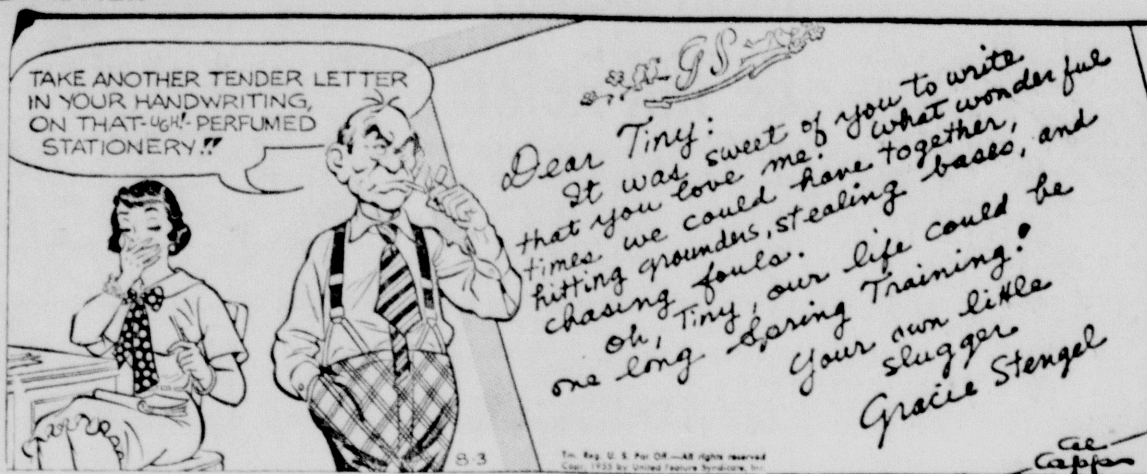 TAKE ANOTHER TENDER LETTER
IN YOUR HANDWRITING,
ON THAT-UGH!-PERFUMED
STATIONERY!!
GS
Dear Tiny:
It was sweet of you to write
that you love me. What wonderful
times we could have together,
hitting grounders, stealing bases, and
chasing fouls.
Oh, Tiny, our life could be
one long Spring Training!
Your own little
slugger
Gracie Stengel
8-3
Tm. Reg. U. S. Pat. Off.—All rights reserved
Copr. 1955 by United Feature Syndicate, Inc.
Al
Capp